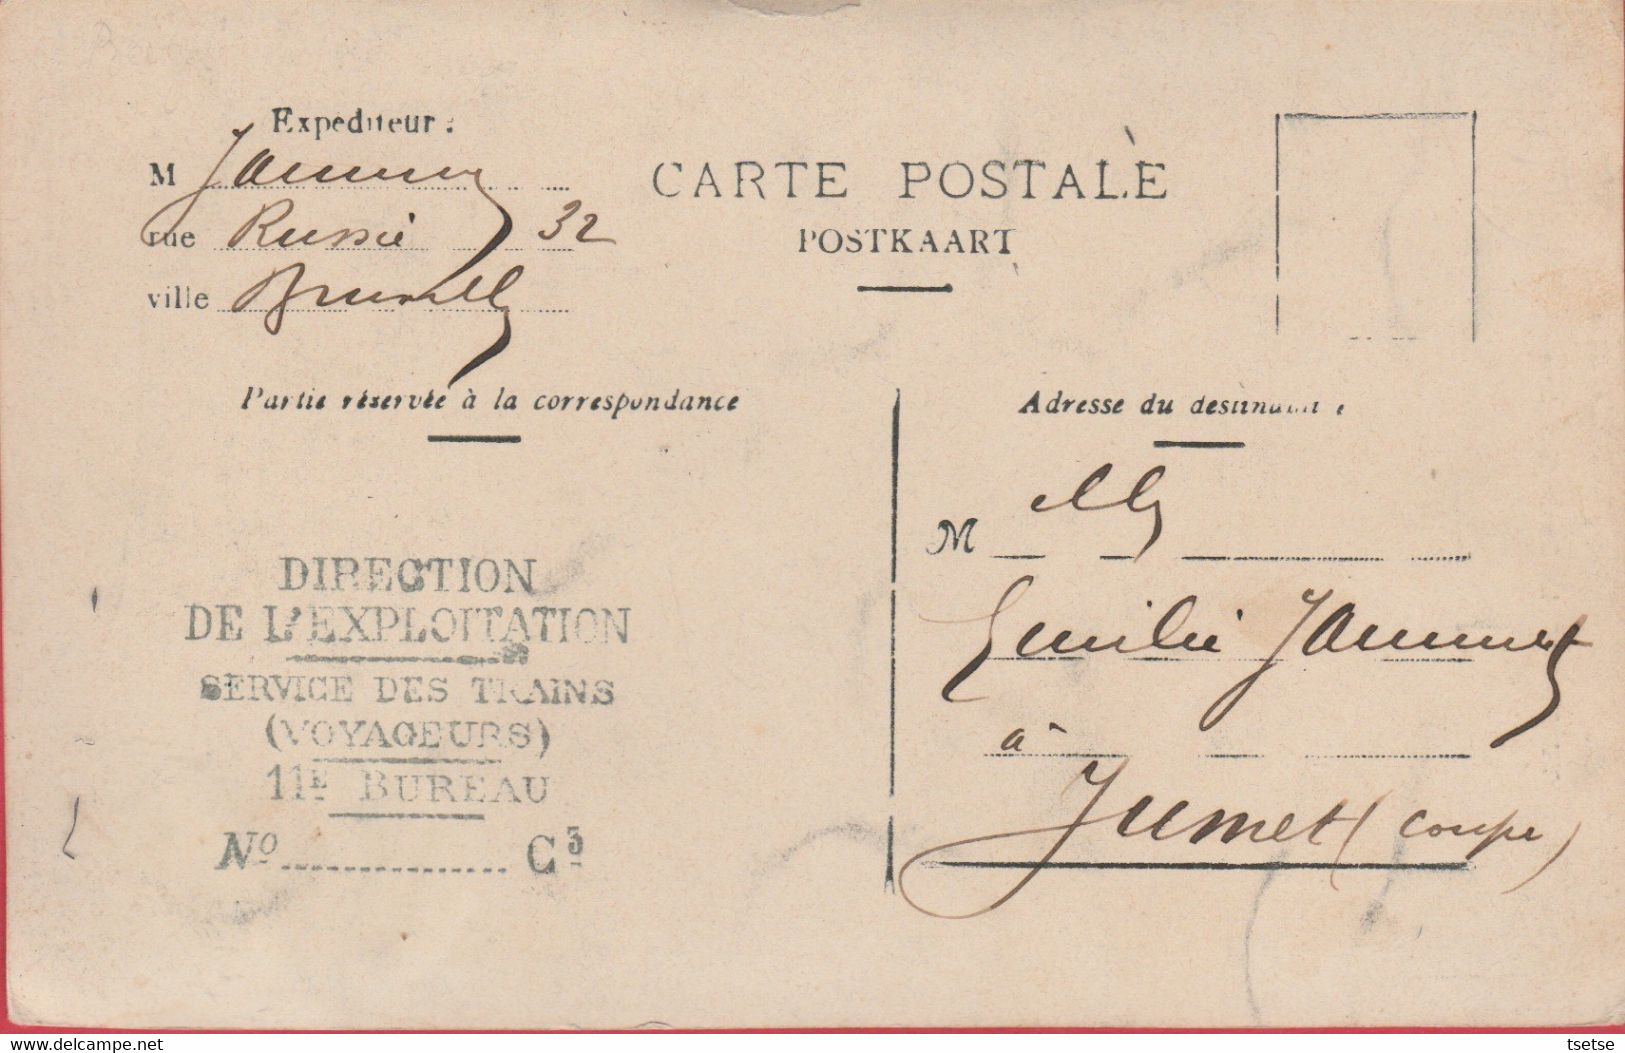 Expéditeur :
M
rue Russie 32
ville Bruxelles
CARTE POSTALE
POSTKAART
Partie réservée à la correspondance
Adresse du destinataire :
DIRECTION
DE L'EXPLOITATION
SERVICE DES TRAINS
(VOYAGEURS)
11E BUREAU
No ............... C3
M elle
Emilie Jaumet
à
Jumet (coupe)
www.delcampe.net
tsetse